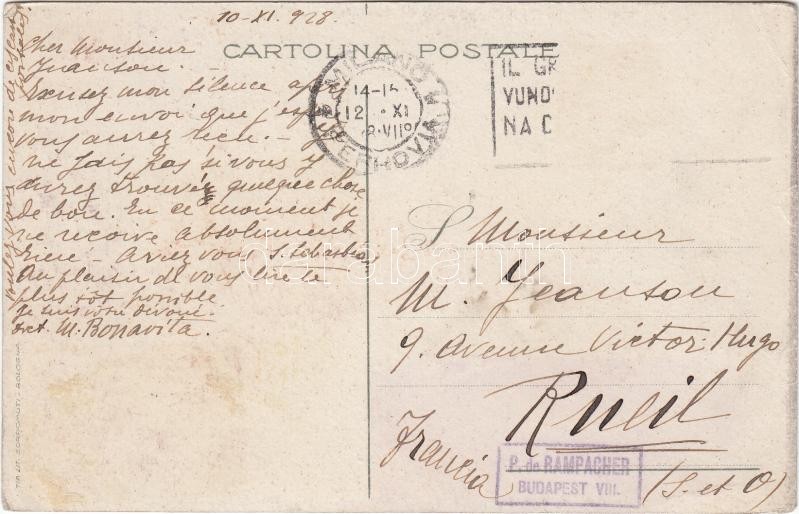 10-XI. 928.
CARTOLINA POSTALE
Cher Monsieur
Jeanson. -
Excusez mon silence après
mon envoi que j'espère
vous aurez reçu. - Je
ne sais pas si vous y
aurez trouvés quelque chose
de bon. En ce moment je
ne reçoive absolument
rien - Avez vous S. Sébastien,
Au plaisir de vous lire le
plus tôt possible
je suis votre dévoué
M. Bonavita.
voulez vous encore de
MILANO
14-15
12 XI
FERROVIA
IL GR
VUNO
NA C
Monsieur
M. Jeanson
9. Avenue Victor-Hugo
Rueil
(S. et O)
Francia
P. de RAMPACHER
BUDAPEST VIII.
darabanth
BOLOGNA